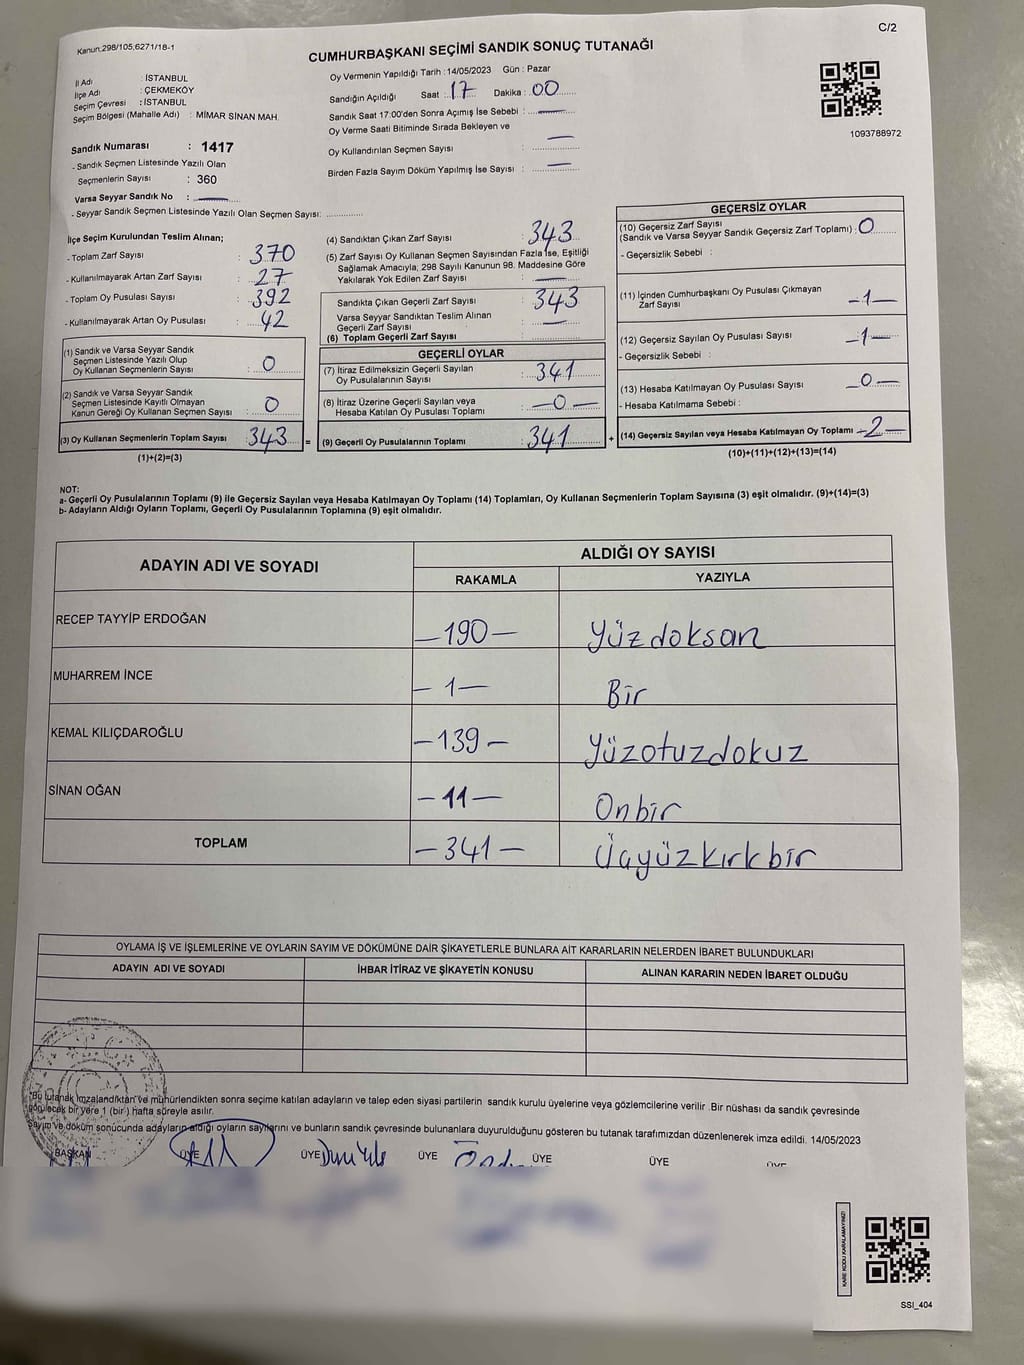 Kanun:298/105,6271/18-1
C/2
CUMHURBAŞKANI SEÇİMİ SANDIK SONUÇ TUTANAĞI
İl Adı : İSTANBUL
İlçe Adı : ÇEKMEKÖY
Seçim Çevresi : İSTANBUL
Seçim Bölgesi (Mahalle Adı) : MİMAR SİNAN MAH.
Sandık Numarası : 1417
- Sandık Seçmen Listesinde Yazılı Olan
Seçmenlerin Sayısı : 360
Varsa Seyyar Sandık No :
- Seyyar Sandık Seçmen Listesinde Yazılı Olan Seçmen Sayısı:
Oy Vermenin Yapıldığı Tarih : 14/05/2023 Gün : Pazar
Sandığın Açıldığı Saat : 17 Dakika : 00
Sandık Saat 17:00'den Sonra Açımış İse Sebebi : —
Oy Verme Saati Bitiminde Sırada Bekleyen ve
Oy Kullandırılan Seçmen Sayısı : —
Birden Fazla Sayım Döküm Yapılmış İse Sayısı : —
1093788972
İlçe Seçim Kurulundan Teslim Alınan;
- Toplam Zarf Sayısı : 370
- Kullanılmayarak Artan Zarf Sayısı : 27
- Toplam Oy Pusulası Sayısı : 392
- Kullanılmayarak Artan Oy Pusulası : 42
(1) Sandık ve Varsa Seyyar Sandık
Seçmen Listesinde Yazılı Olup
Oy Kullanan Seçmenlerin Sayısı : 0
(2) Sandık ve Varsa Seyyar Sandık
Seçmen Listesinde Kayıtlı Olmayan
Kanun Gereği Oy Kullanan Seçmen Sayısı : 0
(3) Oy Kullanan Seçmenlerin Toplam Sayısı : 343 =
(1)+(2)=(3)
(4) Sandıktan Çıkan Zarf Sayısı : 343
(5) Zarf Sayısı Oy Kullanan Seçmen Sayısından Fazla İse, Eşitliği
Sağlamak Amacıyla, 298 Sayılı Kanunun 98. Maddesine Göre
Yakılarak Yok Edilen Zarf Sayısı : —
Sandıkta Çıkan Geçerli Zarf Sayısı : 343
Varsa Seyyar Sandıktan Teslim Alınan
Geçerli Zarf Sayısı : —
(6) Toplam Geçerli Zarf Sayısı
GEÇERLİ OYLAR
(7) İtiraz Edilmeksizin Geçerli Sayılan
Oy Pusulalarının Sayısı : 341
(8) İtiraz Üzerine Geçerli Sayılan veya
Hesaba Katılan Oy Pusulası Toplamı : —0—
(9) Geçerli Oy Pusulalarının Toplamı : 341 +
GEÇERSİZ OYLAR
(10) Geçersiz Zarf Sayısı
(Sandık ve Varsa Seyyar Sandık Geçersiz Zarf Toplamı) : 0
- Geçersizlik Sebebi :
(11) İçinden Cumhurbaşkanı Oy Pusulası Çıkmayan
Zarf Sayısı : —1—
(12) Geçersiz Sayılan Oy Pusulası Sayısı : —1—
- Geçersizlik Sebebi :
(13) Hesaba Katılmayan Oy Pusulası Sayısı : —0—
- Hesaba Katılmama Sebebi :
(14) Geçersiz Sayılan veya Hesaba Katılmayan Oy Toplamı —2—
(10)+(11)+(12)+(13)=(14)
NOT:
a- Geçerli Oy Pusulalarının Toplamı (9) ile Geçersiz Sayılan veya Hesaba Katılmayan Oy Toplamı (14) Toplamları, Oy Kullanan Seçmenlerin Toplam Sayısına (3) eşit olmalıdır. (9)+(14)=(3)
b- Adayların Aldığı Oyların Toplamı, Geçerli Oy Pusulalarının Toplamına (9) eşit olmalıdır.
ADAYIN ADI VE SOYADI
ALDIĞI OY SAYISI
RAKAMLA YAZIYLA
RECEP TAYYİP ERDOĞAN —190— Yüzdoksan
MUHARREM İNCE —1— Bir
KEMAL KILIÇDAROĞLU —139— Yüzotuzdokuz
SİNAN OĞAN —11— Onbir
TOPLAM —341— Üçyüzkırkbir
OYLAMA İŞ VE İŞLEMLERİNE VE OYLARIN SAYIM VE DÖKÜMÜNE DAİR ŞİKAYETLERLE BUNLARA AİT KARARLARIN NELERDEN İBARET BULUNDUKLARI
ADAYIN ADI VE SOYADI İHBAR İTİRAZ VE ŞİKAYETİN KONUSU ALINAN KARARIN NEDEN İBARET OLDUĞU
*Bu tutanak imzalandıktan ve mühürlendikten sonra seçime katılan adayların ve talep eden siyasi partilerin sandık kurulu üyelerine veya gözlemcilerine verilir .Bir nüshası da sandık çevresinde
görülecek bir yere 1 (bir ) hafta süreyle asılır.
Sayım ve döküm sonucunda adayların aldığı oyların sayılarını ve bunların sandık çevresinde bulunanlara duyurulduğunu gösteren bu tutanak tarafımızdan düzenlenerek imza edildi. 14/05/2023
BAŞKAN ÜYE ÜYE ÜYE ÜYE ÜYE
KARE KODU KARALAMAYINIZ!
SSI_404